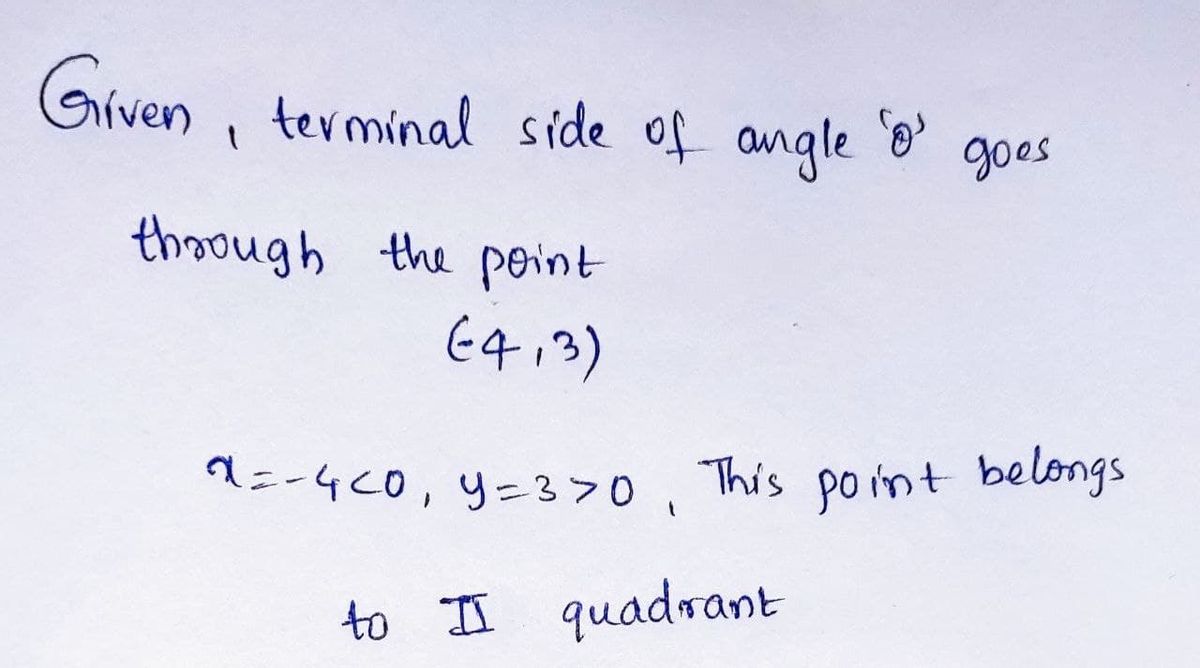 Given, terminal side of angle 'θ' goes
through the point
(-4,3)
x=-4<0, y=3>0, This point belongs
to II quadrant